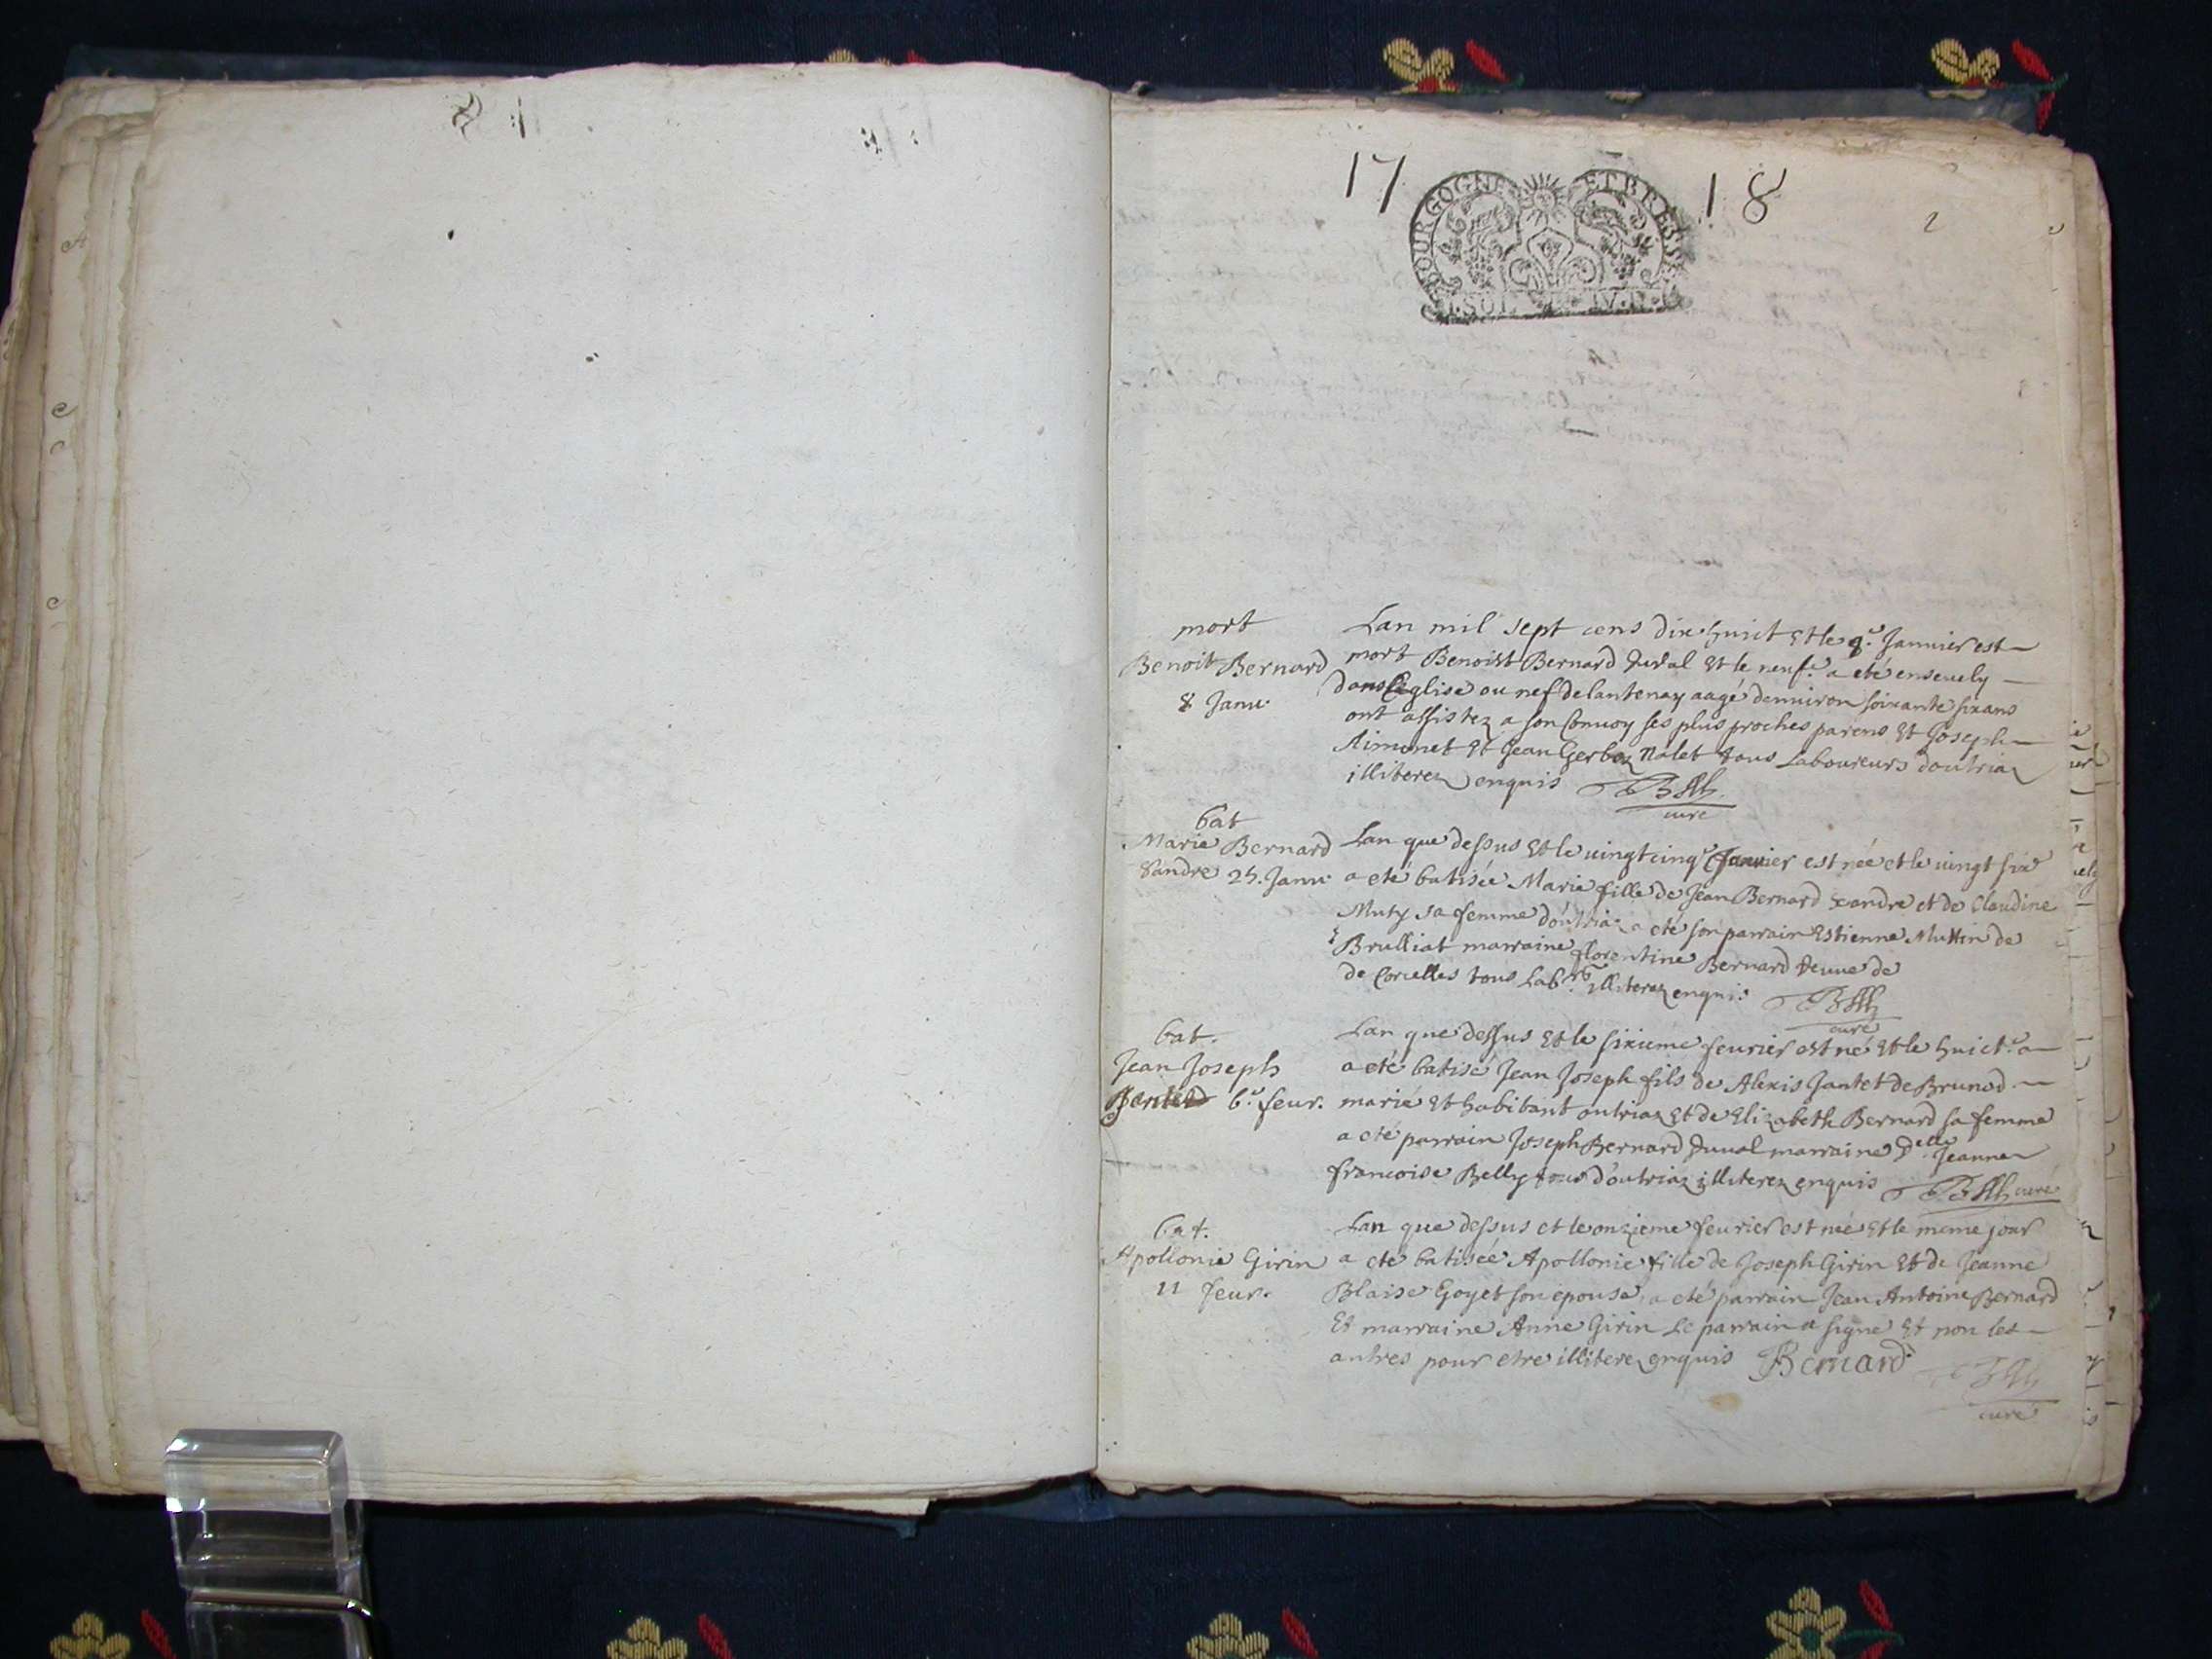 17 18
BOURGOGNE ET BRESSE
2
mort
Benoit Bernard
8 Janu.
Lan mil sept cens dix huict et le 8.e Januier est
mort Benoist Bernard Juval et le neuf.e a eté enseuely
dans leglise ou nef de lantenay aagé denuiron soixante six ans
ont assistez a son conuoy ses plus proches parens et Joseph
Aimonet et Jean Gerboz Nalet tous Laboureurs doutriaz
illiterez enquis
curé
bat
Marie Bernard
Sandre 25. Janu.
Lan que dessus et le uingt cinq.e Januier est née et le uingt six.e
a eté batisée Marie fille de Jean Bernard Xandre et de Claudine
Muty sa femme doutriaz a eté son parrain Estienne Muttin de
Brulliat marraine florentine Bernard veuue de
de Corcelles tous Lab.rs illiterez enquis
curé
bat.
Jean Joseph
Jantet 6.e feur.
Lan que dessus et le sixieme feurier est né et le huict.e a
a eté batisé Jean Joseph fils de Alexis Jantet de Brunod
marié et habitant outriaz et de Elizabeth Bernard sa femme
a eté parrain Joseph Bernard Juual marraine D.elle Jeanne
francoise Belly tous d'outriaz illiterez enquis
curé
bat.
Apollonie Girin
11 feur.
Lan que dessus et le onzieme feurier est née et le meme jour
a eté batisée Apollonie fille de Joseph Girin et de Jeanne
Blaise Goyet son epouse a eté parrain Jean Antoine Bernard
et marraine Anne Girin Le parrain a signé et non les
autres pour etre illiterez enquis Bernard
curé